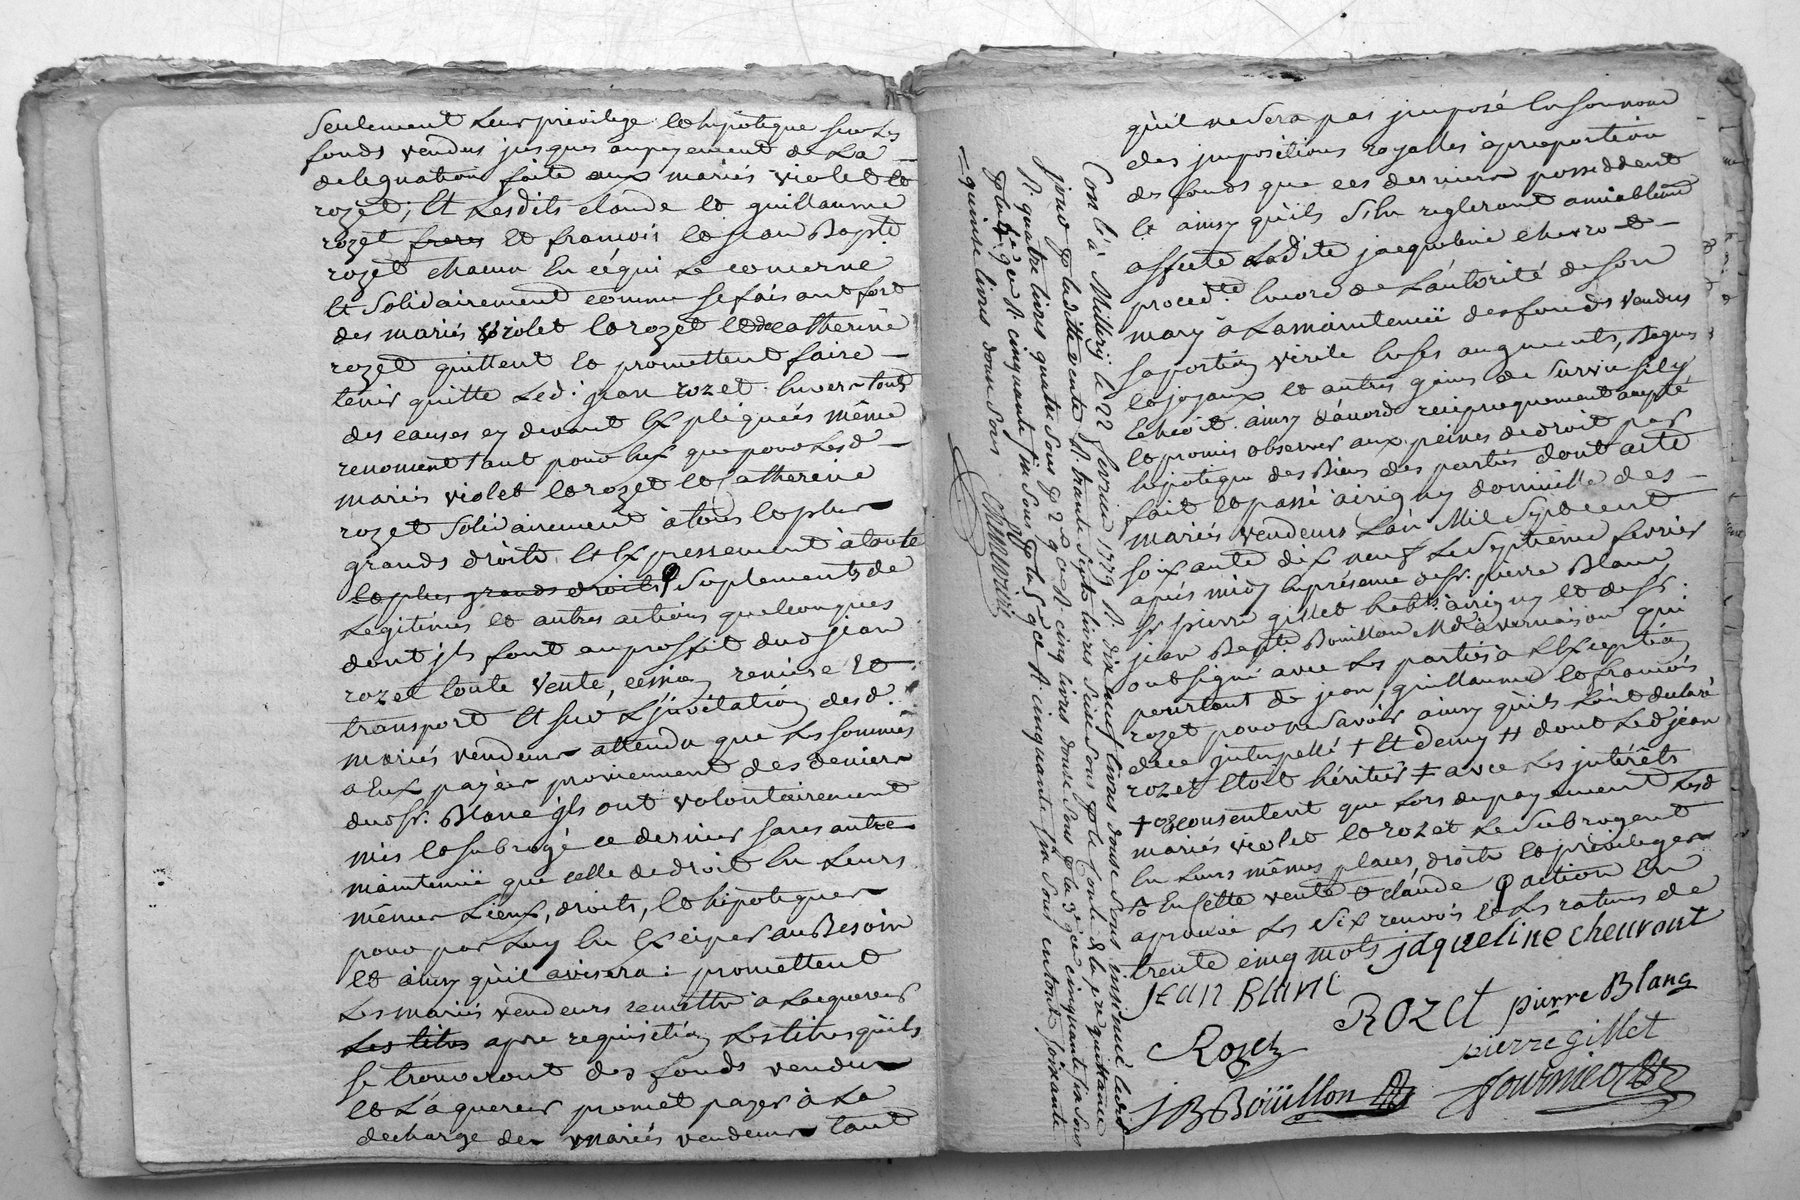 Seulement Leur privilege et hipoteque sur Les
fonds vendus jusques au payement de La
delegnation faite aux mariés violet et
rozet; Et Lesdits claude et guillaume
rozet freres et francois et jean Bapt.te
rozet chacun En ce qui Le concerne
Et Solidairement comme se faisant fort
des mariés violet et rozet et de catherine
rozet quittent et promettent faire
tenir quitte Led: jean rozet Envers touts
des causes cy devant Expliquées même
renoncent tant pour Eux que pour Lesd
mariés violet et rozet et Catherine
rozet solidairement à tous et plus
grands droits et Expressement à toute
et plus grands droits Suplements de
Legitimes et autres actions quelconques
dont jls font au proffit dud jean
rozet toute vente, cession remise et
transport Et sur L'invitation desd.
mariés vendeurs attendu que Les sommes
a Eux payées proviennent des deniers
dud sr. Blanc jls ont volontairement
mis et subrogé ce dernier sans autre
maintenüe que celle de droit En Leurs
mêmes Lieux, droits, et hipoteques
pour par Luy En Exciper au Besoin
et ainsy qu'il avisera: promettent
Les mariés vendeurs remettre à Lacquereur
Les titres apre requisition Les titres qu'ils
se trouveront des fonds vendus
et L'aquereur promet payer à La
decharge des mariés vendeurs tant
qu'il ne sera pas jmposé En son nom
des jmpositions royalles à proportion
des fonds que ces derniers posseddent
Et ainsy qu'ils s'En regleront amiablem.t
affecte Ladite jacqueline chevrot
proced.te Encore de L'autorité de son
mary à La maintenüe des fonds vendus
sa portion virile En ses augments, Bagues
et joyaux et autres gains de survie sily
Echeoit ainsy d'acord reciproquement accepté
et promis observer aux peines de droit par
hipoteque des Biens des parties dont acte
fait et passé à irigny domicille des
mariés vendeurs L'an Mil Sept cent
soixante dix neuf Le Septieme fevrier
apres midy En présence de sr. pierre Blanc
sr. pierre gillet habt. à irigny et de sr.
jean Bapt.te Bouillon Md à vernaison qui
ont signé avec Les parties à L'Exception
pourtant de jean, guillaume et francois
rozet pour ne savoir ainsy qu'ils L'ont declaré
de ce jnterpellé + Et demy ++ dont Led jean
rozet Etoit héritier ‡ avec Les jntérêts
+ consentent que Lors du payement Lesd
mariés violet et rozet Le subrogent
En Leurs mêmes places, droits et privileges
En Cette vente et claude action En
aprouvé Les six renvois et Les ratures de
trente cinq mots jaqueline cheuront
JEan BLANC
ROZEt pierre Blanc
Rozet
pierre gillet
JB Boüillon
fournier
Con lé à Millery le 22 fevrier 1779 R. dix neuf livres douse sous insinué ledit
jour p. ladite vente R. trente sept livres seise sous p. le contrôle de la 1re quittance
R. quatre livres quatre sous p. 2e qce R. cinq livres douse sous p. la 3e qce cinquante six sous
p. la 4e qce R. cinquante six sous p. la 5e qce R. cinquante six sous en tout soixante
quinse livres douse sous